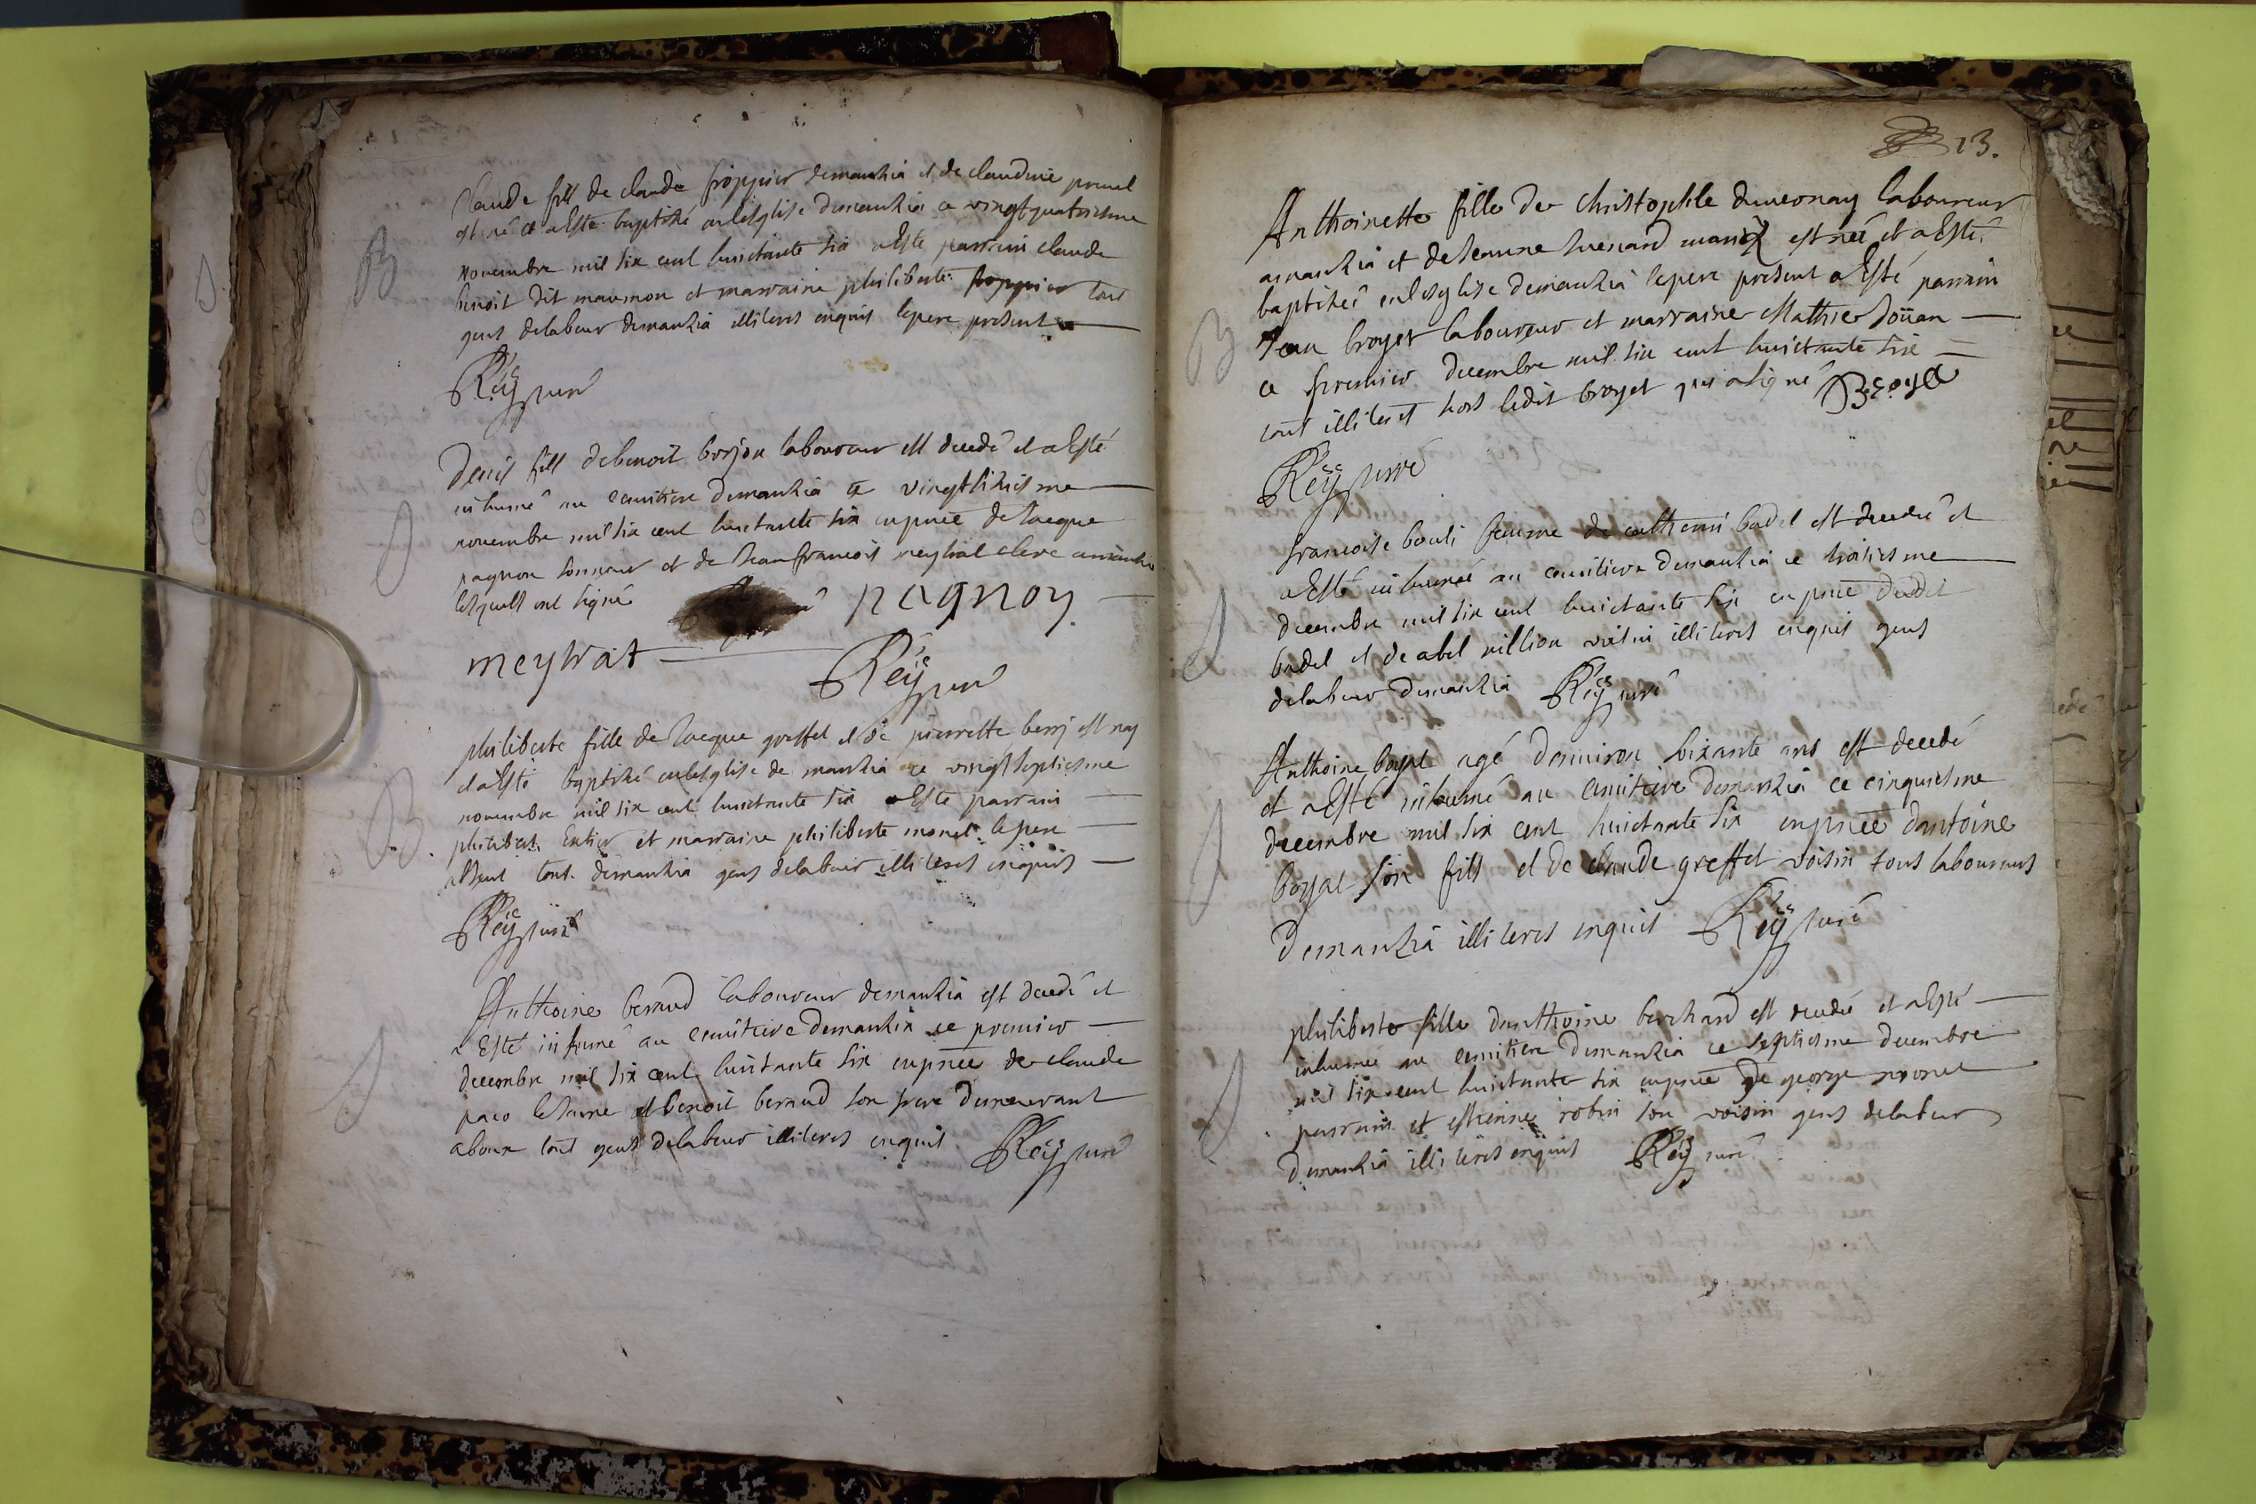 B
Claude fils de claude froppier demanhia et de claudine
est né et a esté baptisé en lesglise demanhia ce vingtquatriesme
novembre mil six cent huictante six a esté parrain claude
benoit dit maumon et marraine philiberte froppier tous
gens delabeur demanhia illiteres enquis lepere present
Rey curé
Denis fils debenoit borjon laboureur est decedé et a esté
inhumé au cemitiere demanhia ce vingtsixiesme
novembre mil six cent huictante six enpñce de Jacque
pagnon sonneur et de Jean francois meytrat clerc
lesquels ont signé
pagnon
meytrat
Rey curé
B
philiberte fille de Jacque greffet et de pierrette berry est nay
et a esté baptisé enlesglise de manhia ce vingtseptiesme
novembre mil six cent huictante six a esté parrain
philibert et marraine philiberte monet lepere
absent tous demanhia gens delabeur illiteres enquis
Rey curé
Anthoine beraud laboureur demanhia est decedé et
a esté inhumé au cemitiere demanhia ce premier
decembre mil six cent huictante six enpñce de claude
paco et benoit beraud son frere demeurant
tous gens delabeur illiteres enquis Rey curé
13.
Anthoinette fille de christophle duvernay laboureur
amanhia et de Jeanne mariés est née et a esté
B
baptisée enlesglise demanhia lepere present a esté parrain
Jean broyer laboureur et marraine Mathie Joüan
ce premier decembre mil six cent huictante six
tous illiteres hors ledit broyer qui a signé Broyer
Rey curé
francoise bouli femme de badel est decedée et
a esté inhumée au cemitiere demanhia ce troisiesme
decembre mil six cent huictante six enpñce dudit
badel et de abel voisin illiteres enquis gens
delabeur demanhia Rey curé
Anthoine boyat agé denviron soixante ans est decedé
et a esté inhumé au cemitiere demanhia ce cinquiesme
decembre mil six cent huictante six enpñce dantoine
boyat son fils et de claude greffet voisin tous laboureurs
demanhia illiteres enquis Rey curé
philiberte fille danthoine berchard est decedée et a esté
inhumée au cemitiere demanhia ce septiesme decembre
mil six cent huictante six enpñce de george monet
parrain et estienne robin son voisin gens delabeur
demanhia illiteres enquis Rey curé